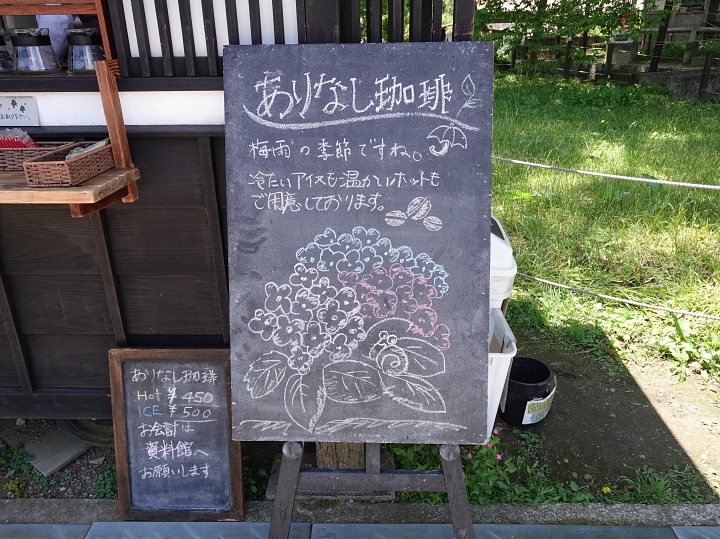 ありなし珈琲
梅雨の季節ですね。
冷たいアイスも温かいホットも
ご用意しております。
ありなし珈琲
Hot ¥450
ICE ¥500
お会計は
資料館へ
お願いします